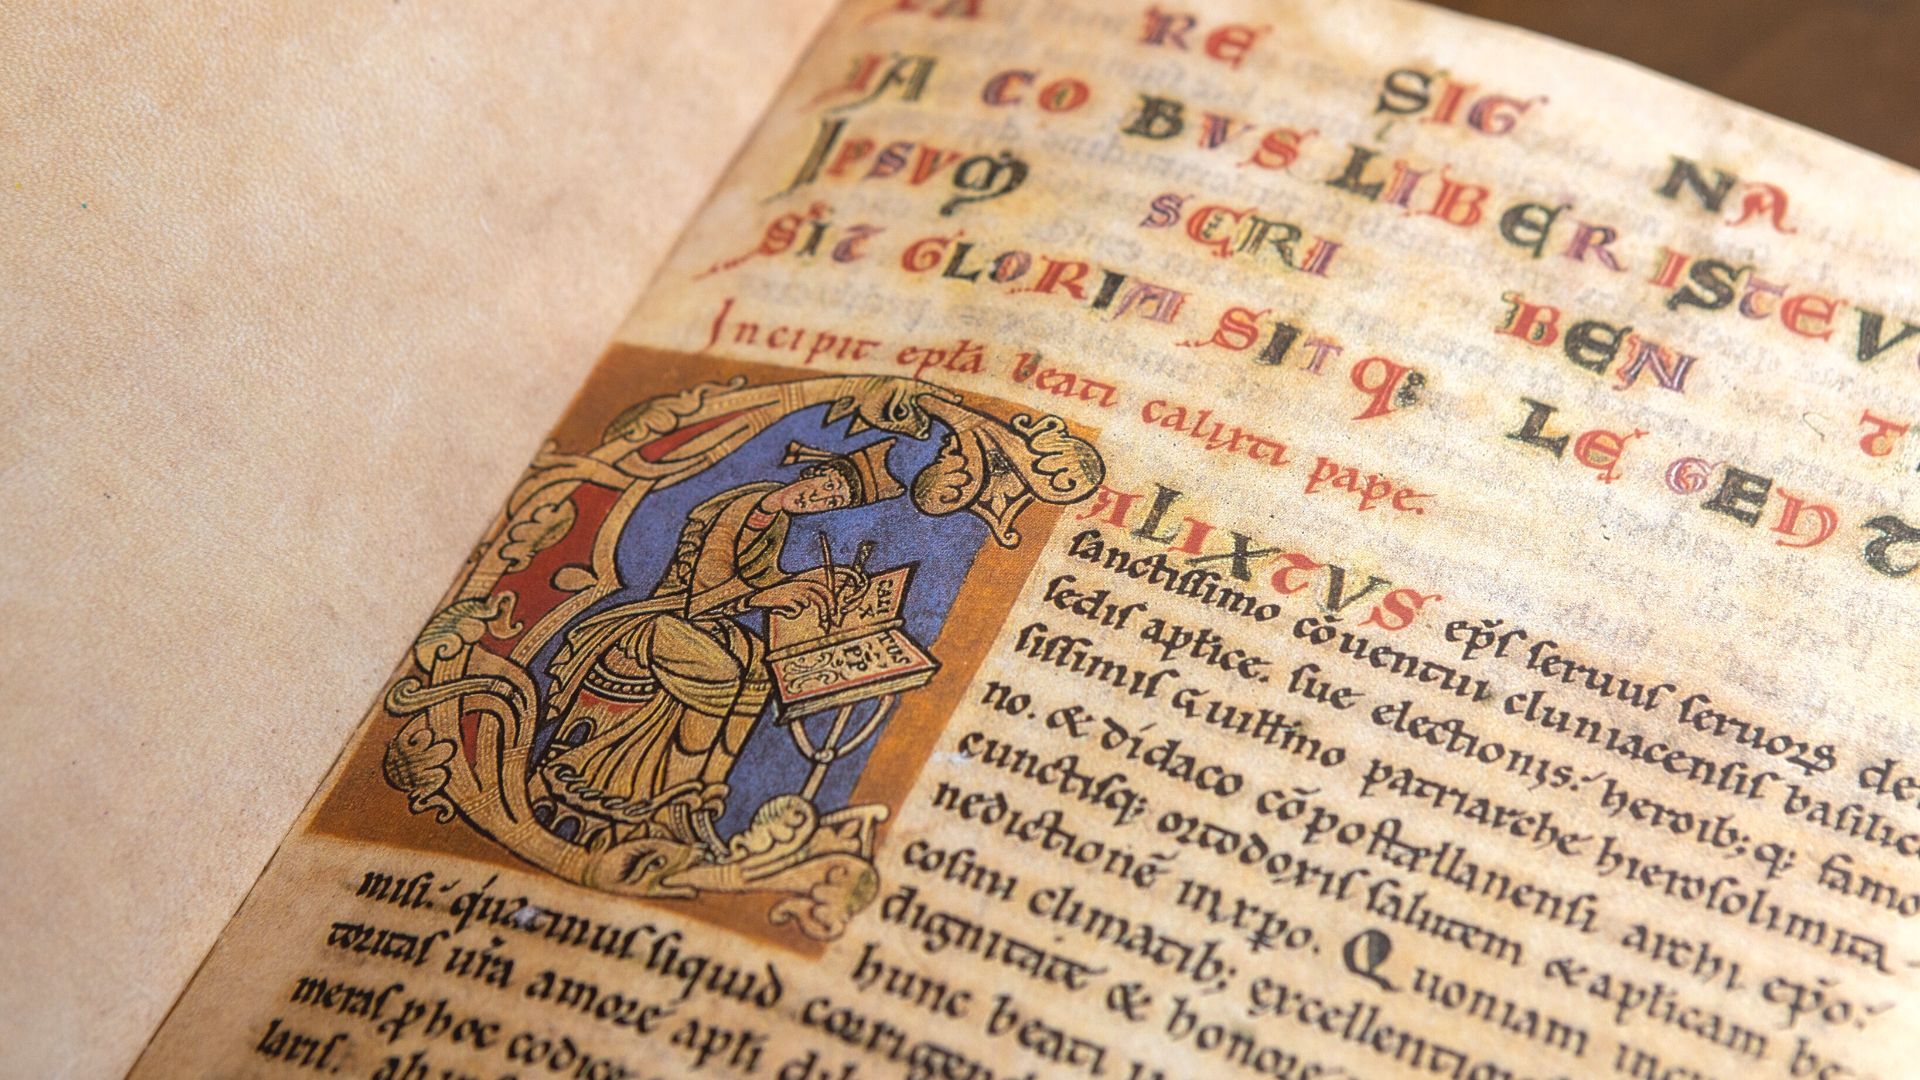 RE SIG NA
IACOBVS LIBER ISTE
IPSVM SCRI BEN T
SIT GLORIA SITQ: LE GEN T
Incipit epła beati calixti pape.
CALIXTVS ep̄s seruus seruoꝝ de
sanctissimo cōuentui cluniacensis basilice
sedis aplice. sue electionis: heroib; q; famo
sissimis Guillmo patriarche hierosolimita
no. & didaco cōpostellanensi archi epo:
cunctisq; ortodoxis salutem & aplicam be
nedictionē in xpo. Quoniam in
cosmi climatib; excellentior
dignitate & honore
hunc beati
misi: quatinus siquid corrigen
toritas ura amore apli
meras ꝑ hoc codice
laris.
CALIX
TUS